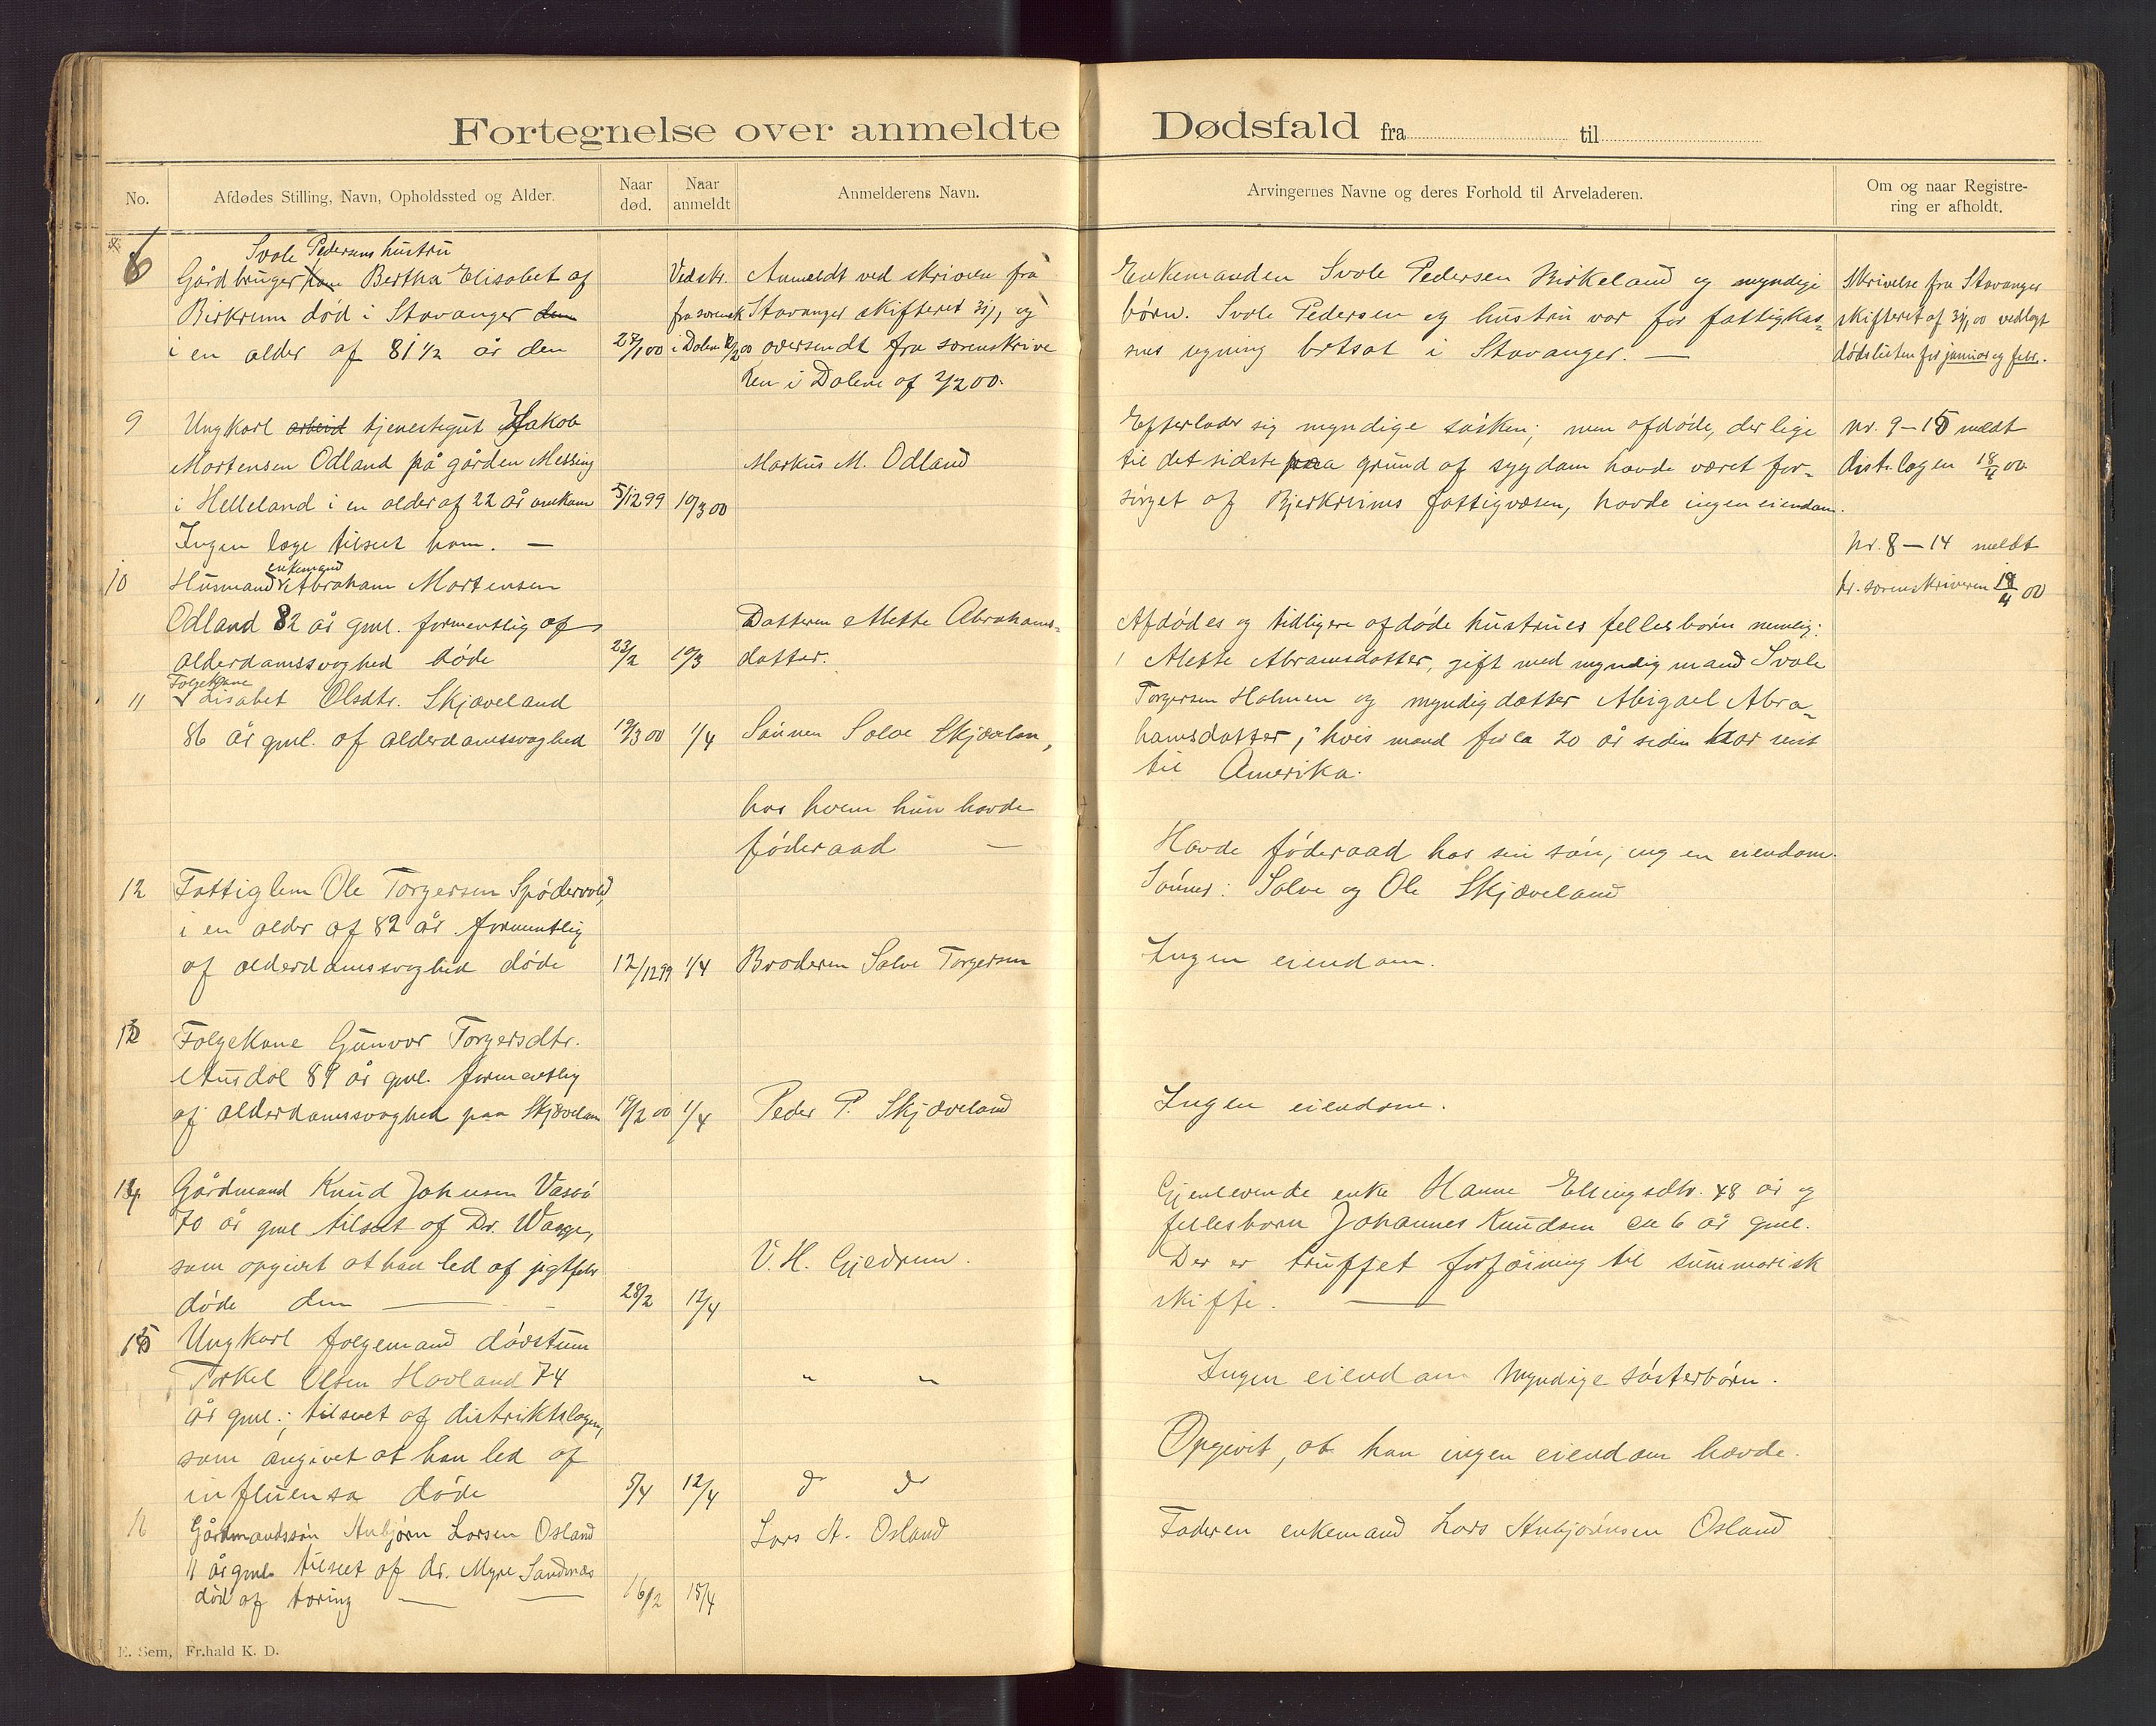 Fortegnelse over anmeldte Dødsfald fra til
No.
Afdødes Stilling, Navn, Opholdssted og Alder.
Naar død.
Naar anmeldt
Anmelderens Navn.
Arvingernes Navne og deres Forhold til Arveladeren.
Om og naar Registrering er afholdt.
8
Svale Pedersens hustru
Gårdbruger Bertha Elisabet af
Birkrem død i Stavanger den
i en alder af 81 1/2 år den
27/1 00
Vedskr.
fra sorensk
i Dalene
Anmeldt ved skrivelse fra
Stavanger skifteret 31/1 og
oversendt fra sorenskrive
ren i Dalene af 2/2 00.
Enkemanden Svale Pedersen Birkeland og myndige
børn. Svale Pedersen og hustru var for fattigkas-
sens regning bortsat i Stavanger. —
Skrivelse fra Stavanger
skifteret af 31/1 00 vedlagt
dødslisten for januar og febr.
9
Ungkarl arbeid tjenestegut Jakob
Mortensen Odland på gården Messing
i Helleland i en alder af 22 år omkom
Ingen læge tilseet ham. —
5/12 99
10/3 00
Markus M. Odland
Efterlader sig myndige søsken; men afdøde, der lige
til det sidste paa grund af sygdom havde været for-
sørget af Bjerkreims fattigvæsen, havde ingen eiendom.
Nr. 9–15 meldt
distr.lægen 18/4 00.
Nr. 8–14 meldt
hr. sorenskriveren 18/4 00
10
enkemand
Husmand Abraham Mortensen
Odland 82 år gml. formentlig af
alderdomssvaghed døde
23/2
10/3
Datteren Mette Abrahams-
datter.
Afdødes og tidligere afdøde hustrues fellesbørn nemlig:
1 Mette Abramsdatter, gift med myndig mand Svale
Torgersen Holmen og myndig datter Abigael Abra-
hamsdatter, hvis mand for ca 20 år siden har reist
til Amerika.
11
Folgekone
Lisabet Olsdtr. Skjæveland
86 år gml. af alderdomssvaghed
19/3 00
1/4
Sønnen Salve Skjævelan,
hos hvem hun havde
føderaad —
Havde føderaad hos sin søn, ingen eiendom.
Sønner: Salve og Ole Skjæveland
12
Fattiglem Ole Torgersen Spødervold,
i en alder af 82 år formentlig
af alderdomssvaghed døde
12/12 99
1/4
Broderen Salve Torgersen
Ingen eiendom.
13
Folgekone Gunvor Torgersdtr.
Ausdal 89 år gml. formentlig
af alderdomssvaghed paa Skjævelan
19/2 00
1/4
Peder P. Skjæveland
Ingen eiendom.
14
Gårdmand Knud Johnsen Vasbø
70 år gml tilseet af Dr. Waage,
som opgivet at han led af gigtfeber
døde den —
28/2
12/4
V. H. Gjedrem.
Gjenlevende enke Hanne Elingsdtr. 48 år og
fellesbarn Johannes Knudsen ca 6 år gml.
Der er truffet forføining til summarisk
skifte. —
15
Ungkarl folgemand døvstum
Torkel Olsen Hovland 74
år gml.; tilseet af distriktslægen,
som angivet at han led af
influensa døde
5/4
12/4
" "
do do
Ingen eiendom Myndige søsterbørn.
Opgivet, at han ingen eiendom havde.
16
Gårdmandssøn Anbjørn Larsen Osland
11 år gml. tilseet af dr. Myre Sandnæs
død af tæring — —
16/2
15/4
Lars A. Osland
Faderen enkemand Lars Anbjørnsen Osland
E. Sem, Fr.hald K. D.